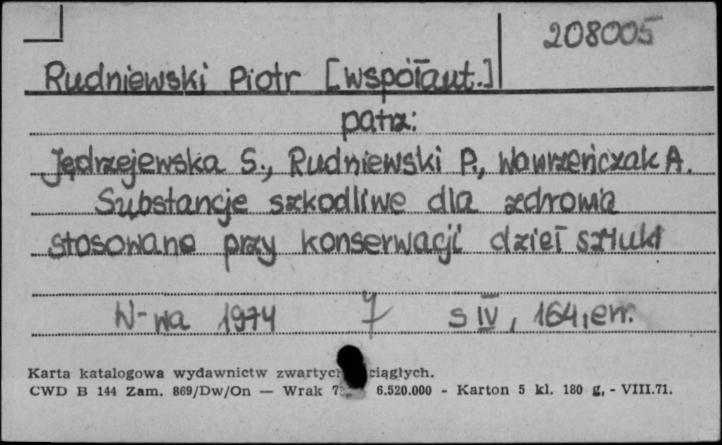 208005
Rudniewski Piotr [współaut.]
patrz:
Jędrzejewska S., Rudniewski P., Wawrzeńczak A.
Substancje szkodliwe dla zdrowia
stosowane przy konserwacji dzieł sztuki
W-wa 1974 7 s IV, 164, err.
Karta katalogowa wydawnictw zwartych ciągłych.
CWD B 144 Zam. 869/Dw/On — Wrak 6.520.000 - Karton 5 kl. 180 g, - VIII.71.